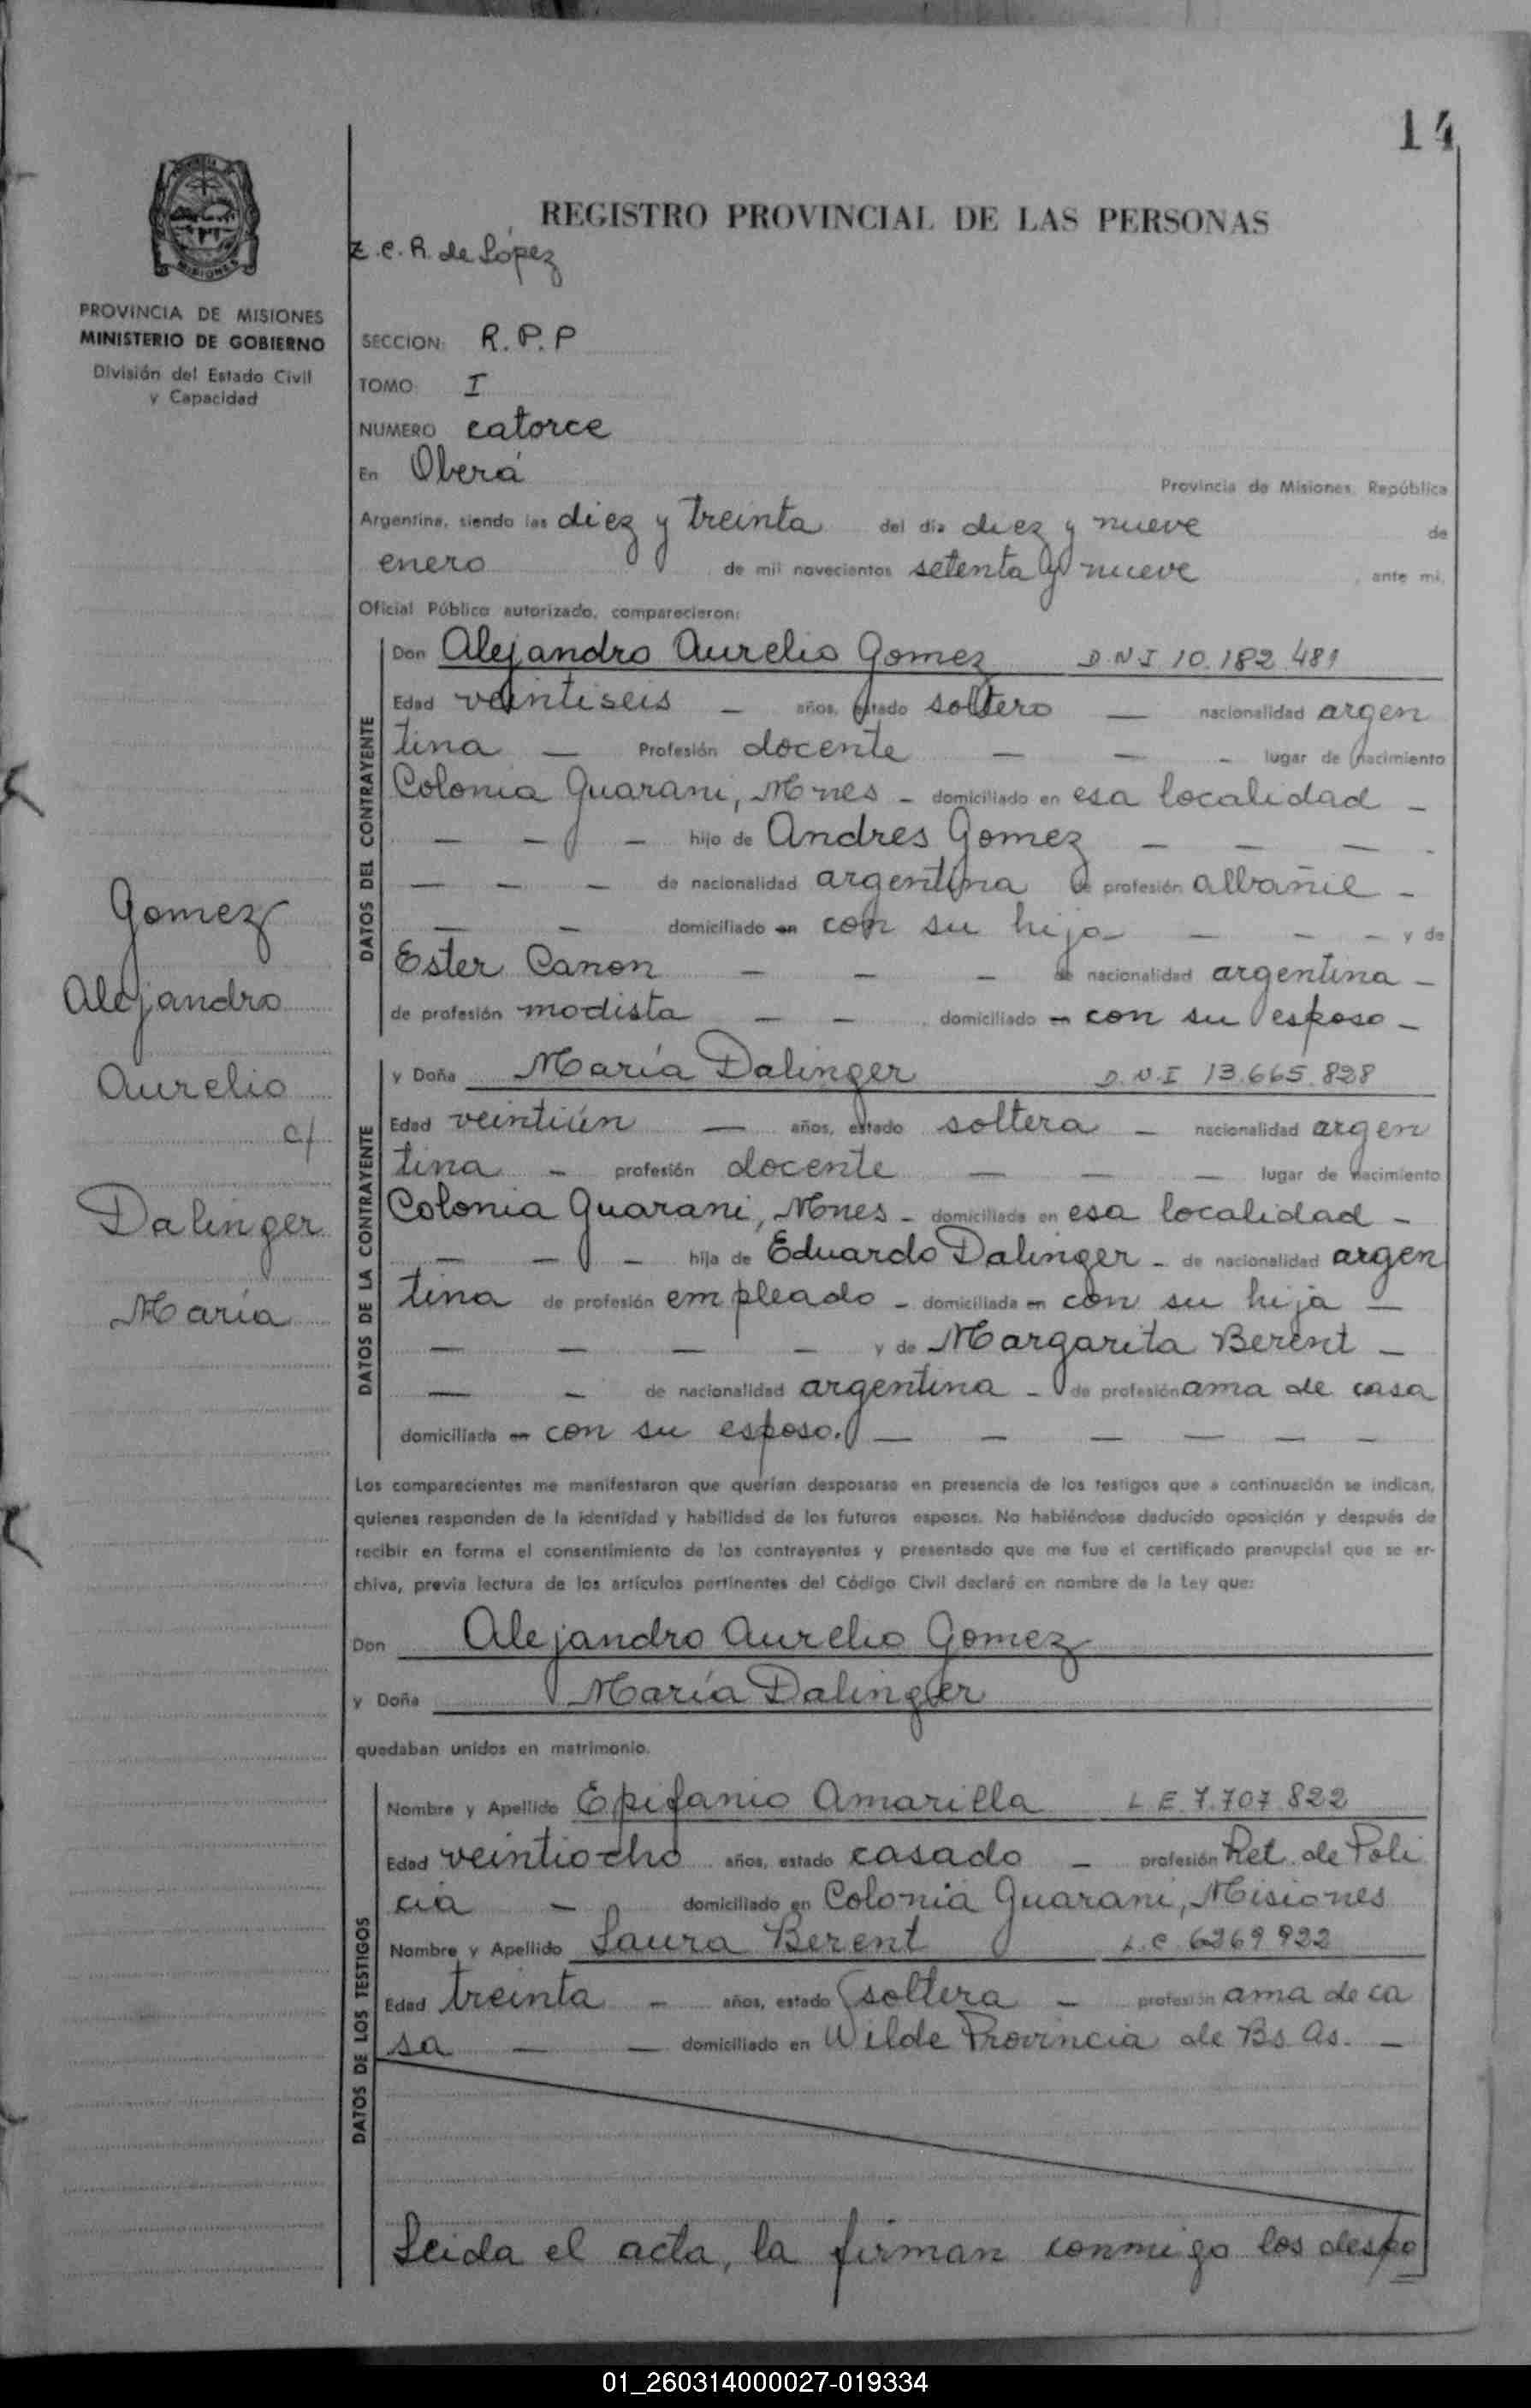 14
REGISTRO PROVINCIAL DE LAS PERSONAS
Z.C.R. de López
PROVINCIA DE MISIONES
MINISTERIO DE GOBIERNO
División del Estado Civil
y Capacidad
SECCION: R.P.P
TOMO: I
NUMERO catorce
En Oberá
Provincia de Misiones, República
Argentina, siendo las diez y treinta del día diez y nueve de
enero de mil novecientos setenta y nueve, ante mí,
Oficial Público autorizado, comparecieron:
DATOS DEL CONTRAYENTE
Don Alejandro Aurelio Gomez D.N.I 10.182.481
Edad veintiseis - años, estado soltero - nacionalidad argen
tina - Profesión docente - - - lugar de nacimiento
Colonia Guarani, Mnes - domiciliado en esa localidad -
- - - hijo de Andres Gomez - - - -
- - - de nacionalidad argentina de profesión albañil -
- - domiciliado en con su hijo - - - y de
Ester Canon - - - de nacionalidad argentina -
de profesión modista - - domiciliado en con su esposo -
DATOS DE LA CONTRAYENTE
y Doña María Dalinger D.N.I 13.665.828
Edad veintiún - años, estado soltera - nacionalidad argen
tina - profesión docente - - - lugar de nacimiento
Colonia Guarani, Mnes - domiciliada en esa localidad -
- - - hija de Eduardo Dalinger - de nacionalidad argen
tina de profesión empleado - domiciliada en con su hija -
- - - - y de Margarita Berent -
- - de nacionalidad argentina - de profesión ama de casa
domiciliada en con su esposo. - - - - - -
Gomez
Alejandro
Aurelio
c/
Dalinger
María
Los comparecientes me manifestaron que querían desposarse en presencia de los testigos que a continuación se indican,
quienes responden de la identidad y habilidad de los futuros esposos. No habiéndose deducido oposición y después de
recibir en forma el consentimiento de los contrayentes y presentado que me fue el certificado prenupcial que se ar-
chiva, previa lectura de los artículos pertinentes del Código Civil declaré en nombre de la Ley que:
Don Alejandro Aurelio Gomez
y Doña María Dalinger
quedaban unidos en matrimonio.
DATOS DE LOS TESTIGOS
Nombre y Apellido Epifanio Amarilla L.E. 7.707.822
Edad veintiocho años, estado casado - profesión Ret. de Poli
cia - domiciliado en Colonia Guarani, Misiones
Nombre y Apellido Laura Berent L.C 6269922
Edad treinta - años, estado soltera - profesión ama de ca
sa - - domiciliado en Wilde Provincia de Bs. As. -
Leida el acta, la firman conmigo los despo
01_260314000027-019334